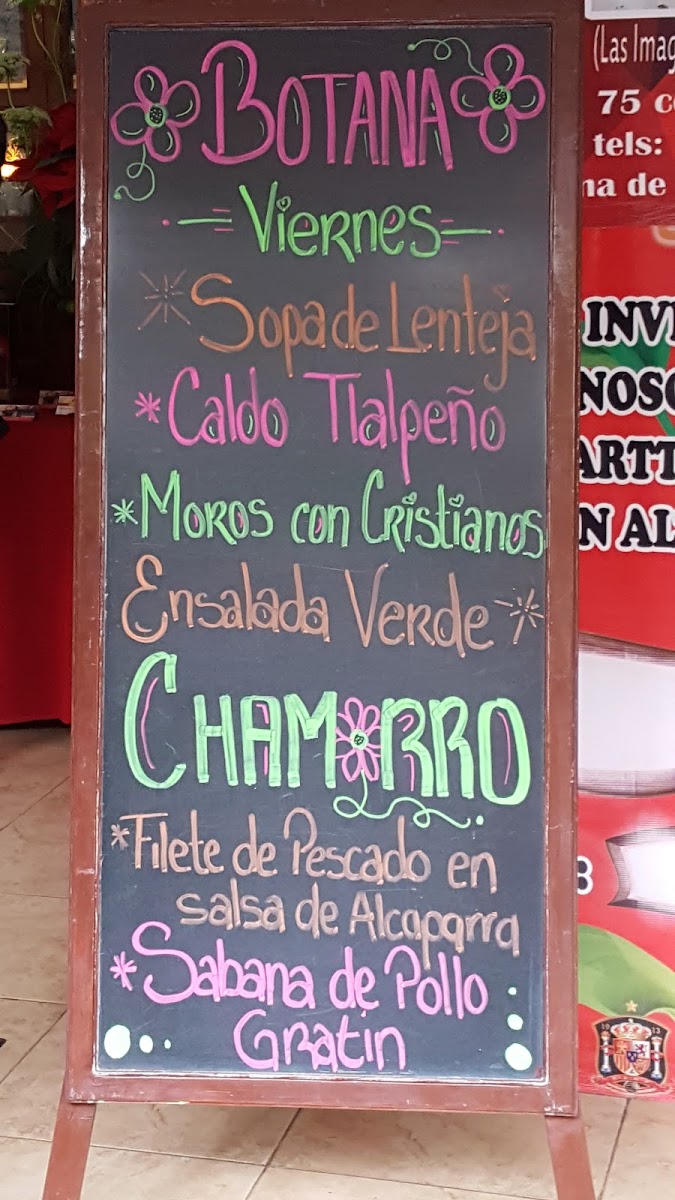 BOTANA
Viernes
Sopa de Lenteja
Caldo Tlalpeño
Moros con Cristianos
Ensalada Verde
CHAMORRO
Filete de Pescado en
salsa de Alcaparra
Sabana de Pollo
Gratin
(Las Imag
75 c
tels:
na de
INV
NOSO
ARTT
N AL